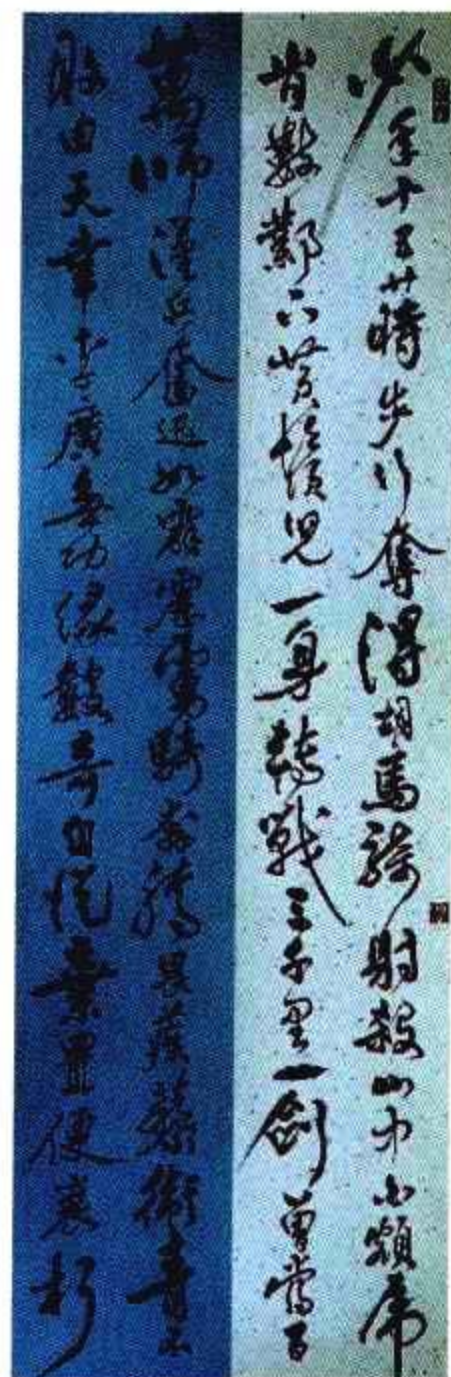 少年十五廿時步行奪得胡馬騎射殺山中白額虎
肯數鄴下黃鬚兒一身轉戰三千里一劍曾當百
萬師漢兵奮迅如霹靂虜騎奔騰畏蒺藜衛青不
敗由天幸李廣無功緣數奇自從棄置便衰朽